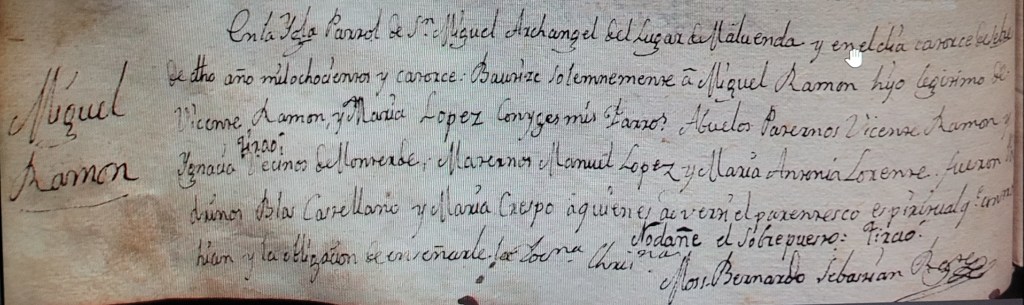 En la Ygla Parrol de Sn. Miguel Archangel del Lugar de Maluenda y en el dia catorce de
de dho año mil ochocientos y catorce: Bautize solemnemente â Miguel Ramon hijo legitimo de
Miguel
Vicente Ramon, y Maria Lopez Conyges mis Parros. Abuelos Paternos Vicente Ramon y
Tirao:
Ygnacia Vecinos de Monterde, Maternos Manuel Lopez y Maria Antonia Lorente. fueron
Ramon
drinos Blas Castellano y Maria Crespo â quienes adverti el parentesco espiritual q.
hian y la obligacion de enseñarle la Docna. Chrisna.
No dañe el sobrepuesto: Tirao:
Moss. Bernardo Sebastian